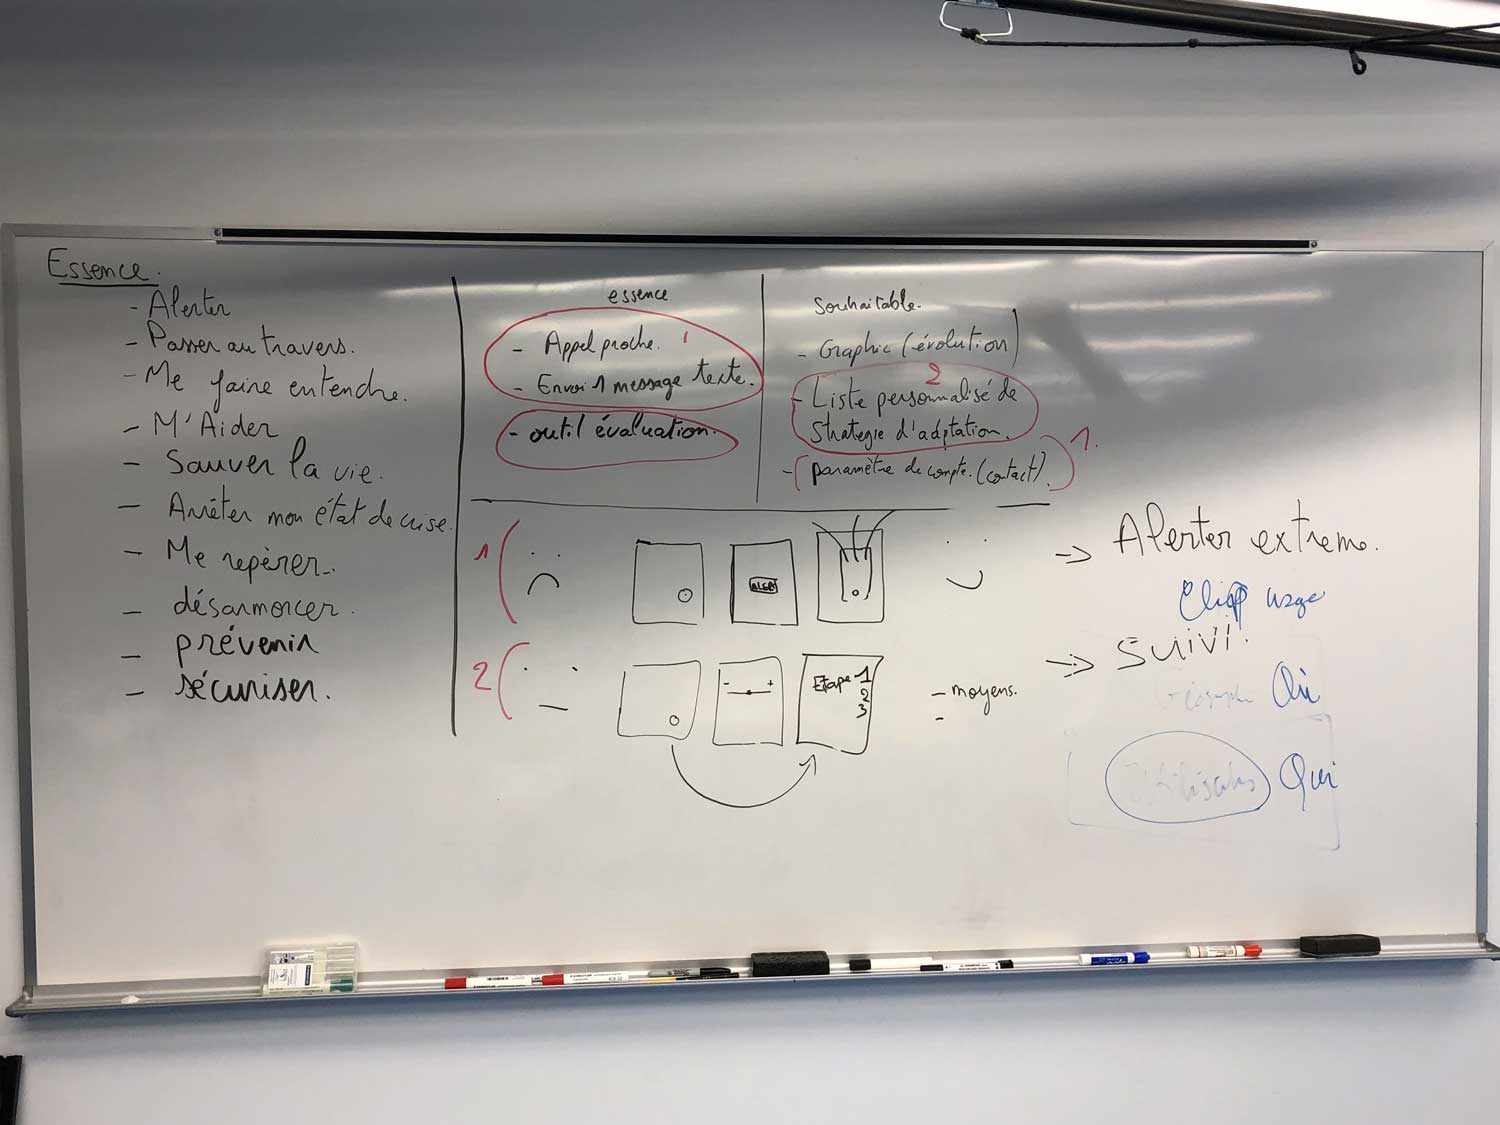 Essence.
- Alerter
- Passer au travers.
- Me faire entendre.
- M'Aider
- Sauver la vie.
- Arrêter mon état de crise.
- Me repèrer.
- désarmorcer.
- prévenir
- sécuriser.
essence
- Appel proche. 1
- Envoi 1 message texte.
- outil évaluation.
souhaitable.
- Graphic (évolution)
2
- Liste personnalisé de
strategie d'adptation.
- (paramètre de compte. (contact). 1.
1
ALER
→ Alerter extreme.
2
- +
Etape 1
2
3
- moyens.
-
→ Suivi.
Où
Qui